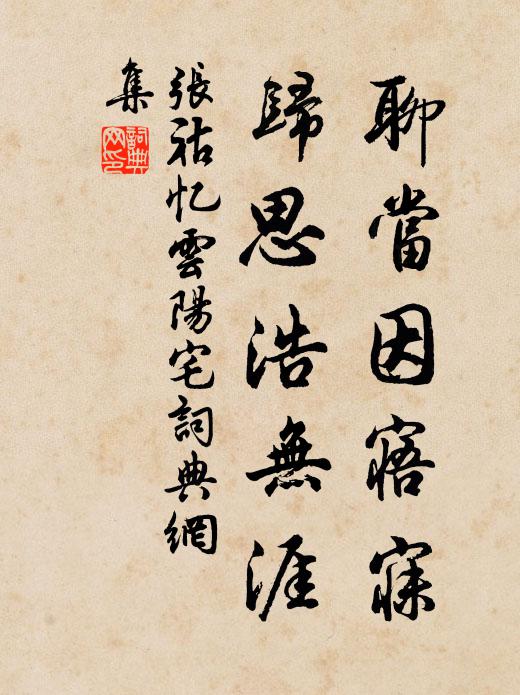 聊當因寤寐
歸思浩無涯
張祜忆雲陽宅詞典網
集
詞典网印